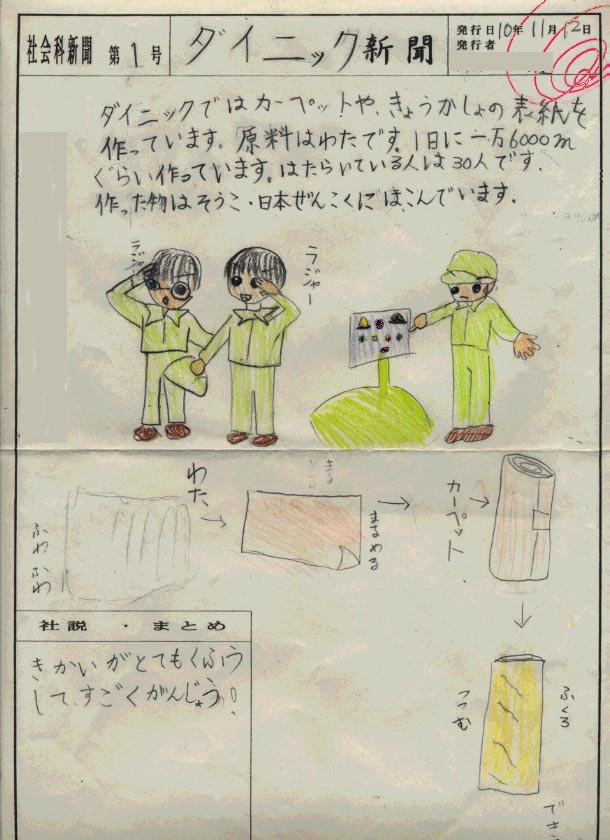 社会科新聞 第1号
ダイニック新聞
発行日 10年 11月 12日
発行者
ダイニックではカーペットや、きょうかしょの表紙を
作っています。原料はわたです。1日に一万6000m
ぐらい作っています。はたらいている人は30人です。
作った物はそうこ・日本ぜんこくにはこんでいます。
ラジャー
ラジャー
わた
ふわふわ
まるめる
カーペット
ふくろ
つつむ
社説・まとめ
きかいがとてもくふう
して、すごくがんじょう!